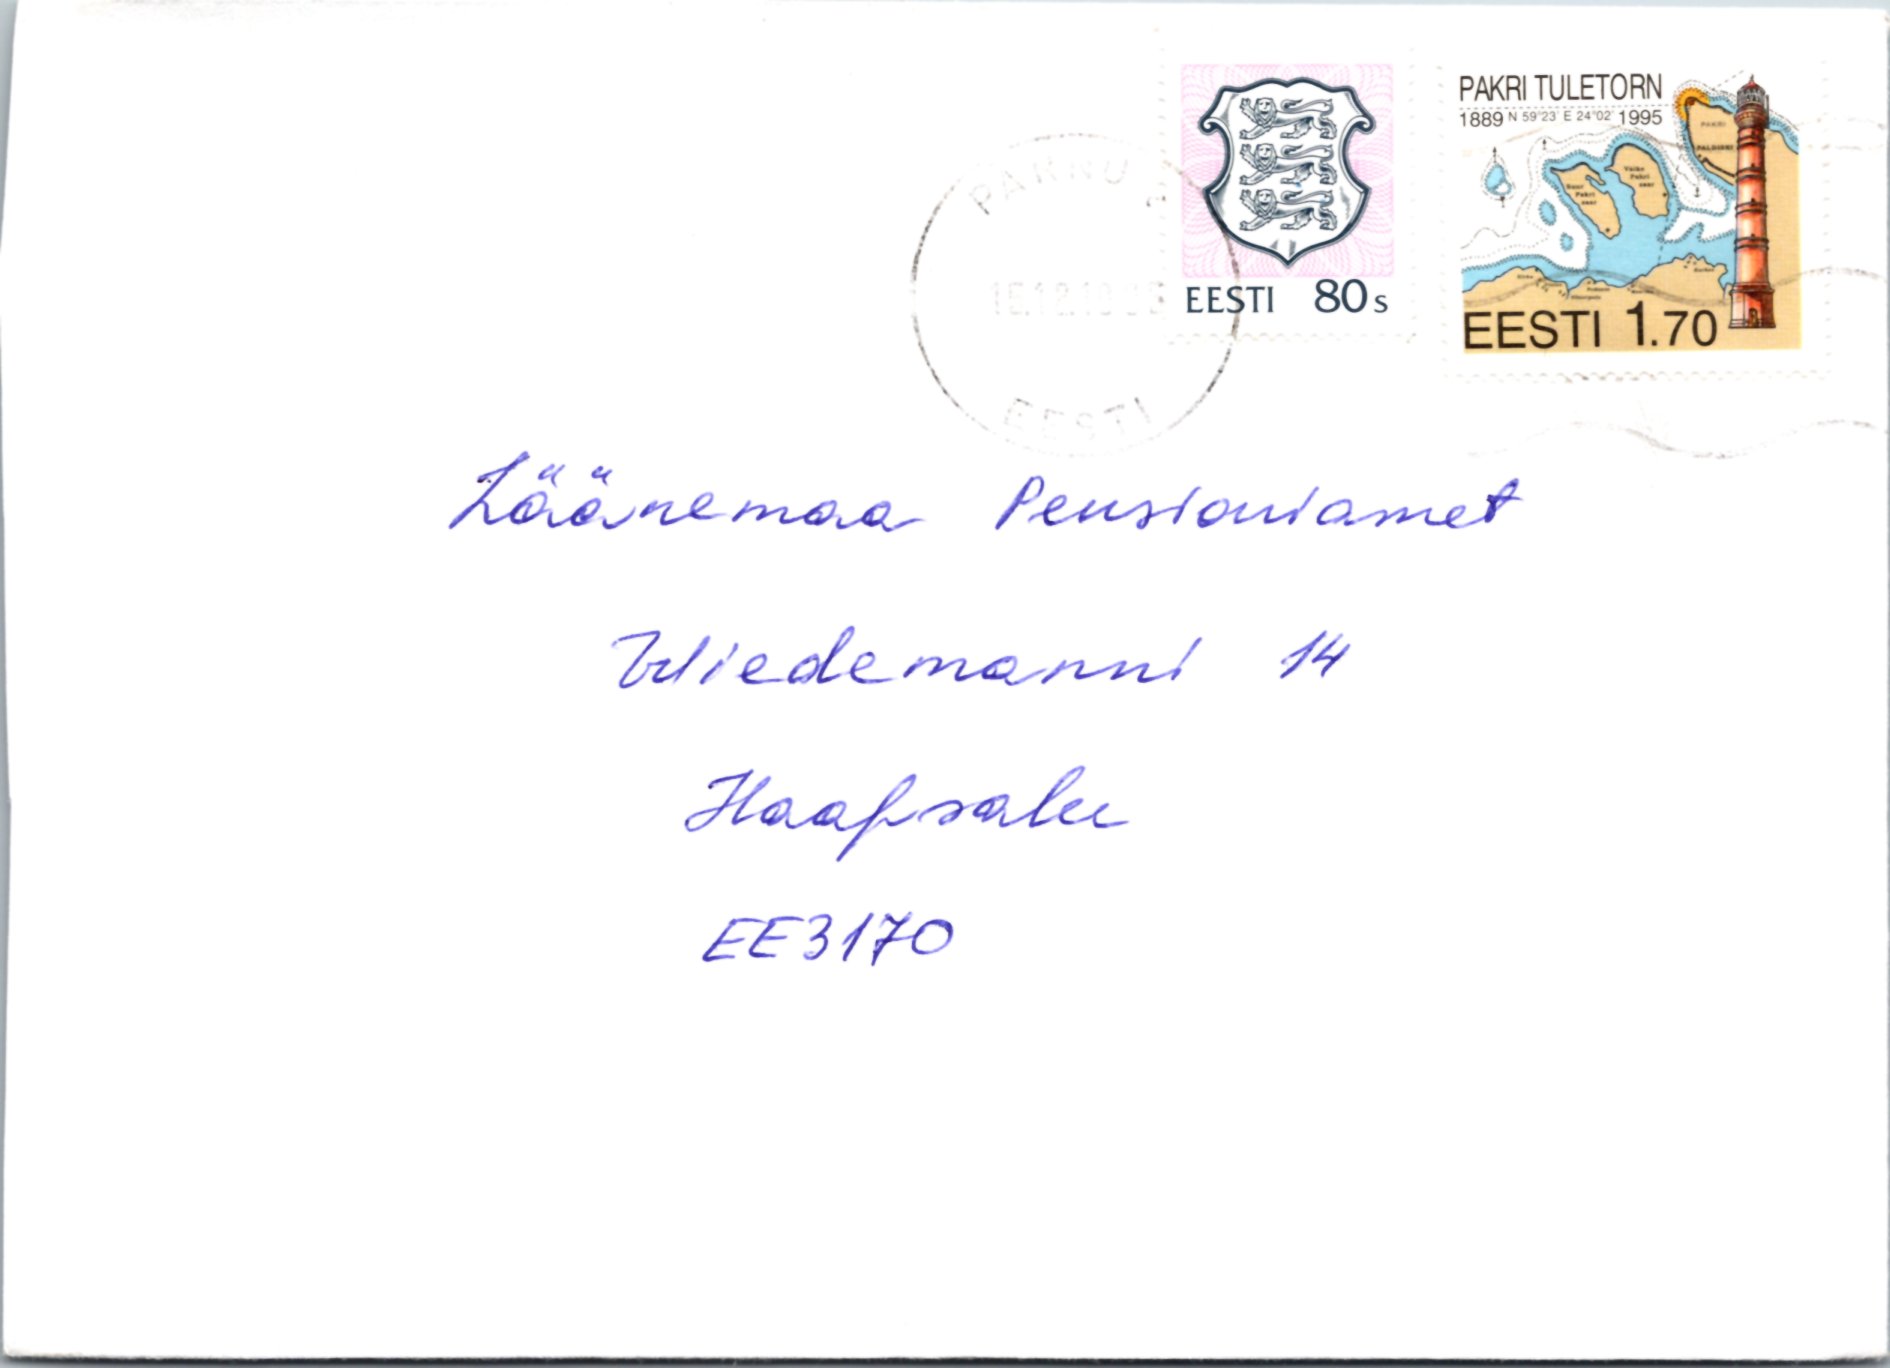 EESTI 80s
PAKRI TULETORN
1889 N 59°23' E 24°02' 1995
PAKRI
PALDISKI
Väike
Pakri
saar
Suur
Pakri
saar
EESTI 1.70
EESTI
Läänemaa Pensioniamet
Wiedemanni 14
Haapsalu
EE3170